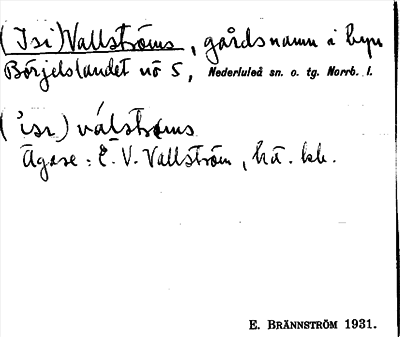 (Isi) Vallströms, gårdsnamn i byn
Börjelslandet nö 5, Nederluleå sn. o. tg. Norrb. l.
('isr) válstrøms
Ägare: E. V. Vallström,
E. BRÄNNSTRÖM 1931.